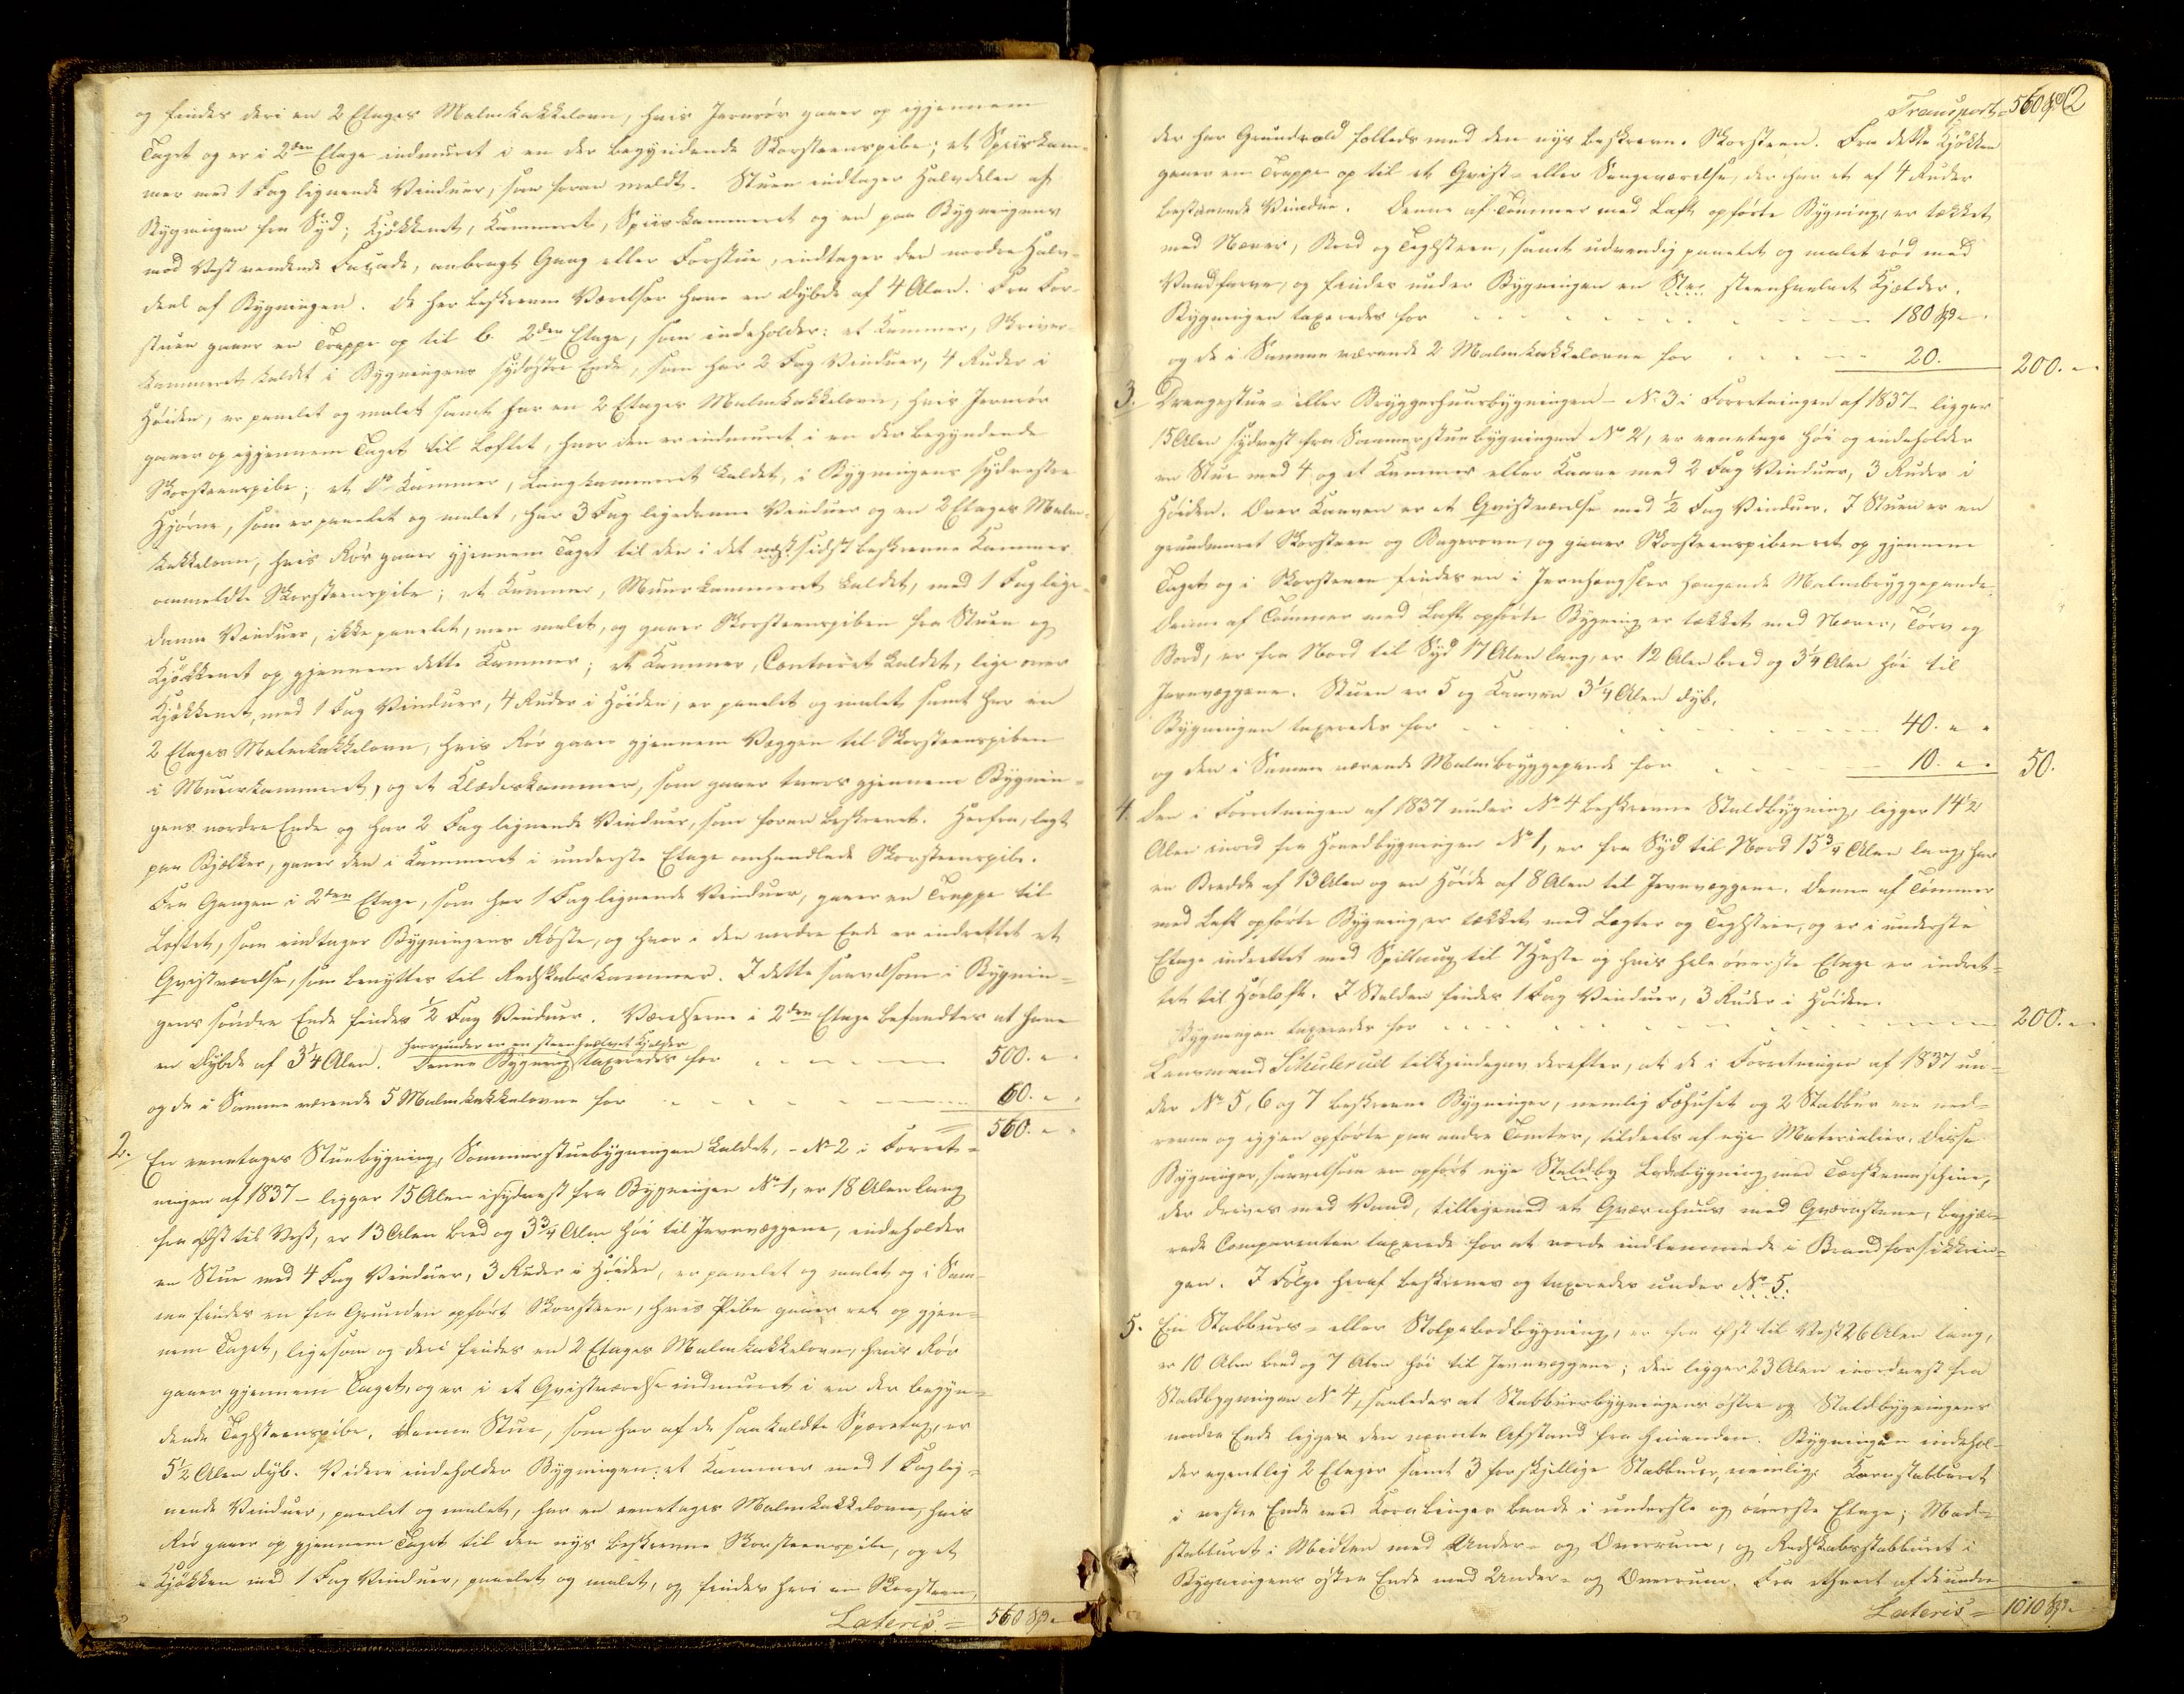 og findes deri en 2 Etages Malmkakkelovn, hvis Jernrör gaaer op igjennem
Taget og er i 2den Etage indmuret i en der begyndende Skorsteenspibe; et Spiiskam-
mer med 1 Fag lignende Vinduer, som foran meldt. Stuen indtager Halvdelen af
Bygningen fra Syd; Kjökkenet, Kammeret, Spiiskammeret og en paa Bygningens
mod Vest vendende Façade, anbragt Gang eller Forstue, indtager den nordre Halv-
deel af Bygningen. De her beskrevne Værelser have en Dybde af 4 Alen. Fra For-
stuen gaaer en Trappe op til b. 2den Etage, som indeholder: et Kammer, Skriver-
kammeret kaldet i Bygningens sydöstre Ende, som har 2 Fag Vinduer, 4 Ruder i
Höiden, er panelet og malet samt har en 2 Etages Malmkakkelovn, hvis Jernrör
gaaer op igjennem Taget til Loftet, hvor den er indmuret i en der begyndende
Skorsteenspibe; et Do Kammer, Langkammeret kaldet, i Bygningens sydvestre
Hjörne, som er panelet og malet, har 3 Fag ligedanne Vinduer og en 2 Etages Malm-
kakkelovn, hvis Rör gaaer gjennem Taget til den i det næstsidst beskrevne Kammer
ommeldte Skorsteenspibe; et Kammer, Muurkammeret kaldet, med 1 Fag lige-
danne Vinduer, ikke panelet, men malet, og gaaer Skorsteenspiben fra Stuen og
Kjökkenet op gjennem dette Kammer; et Kammer, Contoiret kaldet, lige over
Kjökkenet, med 1 Fag Vinduer, 4 Ruder i Höiden, er panelet og malet samt har en
2 Etages Malmkakkelovn, hvis Rör gaaer gjennem Væggen til Skorsteenspiben
i Muurkammeret, og et Klædeskammer, som gaaer tvers gjennem Bygnin-
gens nordre Ende og har 2 Fag lignende Vinduer, som foran beskrevet. Herfra, lagt
paa Bjelker, gaaer den i Kammeret i underste Etage omhandlede Skorsteenspibe.
Fra Gangen i 2den Etage, som har 1 Fag lignende Vinduer, gaaer en Trappe til
Loftet, som indtager Bygningens Röste, og hvor i den nordre Ende er indrettet et
Qvistværelse, som benyttes til Redskabskammer. I dette saavelsom i Bygnin-
gens söndre Ende findes 1/2 Fag Vinduer. Værelserne i 2den Etage befandtes at have
hvorunder er en steenhvælvet Kjælder
en Dybde af 3 1/4 Alen. Denne Bygning taxeredes for 500. " "
og de i Samme værende 5 Malmkakkelovne for 60. " "
560. " "
2. En eenetages Stuebygning, Sommerstuebygningen kaldet, - No 2 i Forret-
ningen af 1837 - ligger 15 Alen i sydvest fra Bygningen No 1, er 18 Alen lang
fra Öst til Vest, er 13 Alen bred og 3 3/4 Alen höi til Jevnvæggene, indeholder
en Stue med 4 Fag Vinduer, 3 Ruder i Höiden, er panelet og malet og i Sam-
me findes en fra Grunden opfört Skorsteen, hvis Pibe gaaer ret op gjen-
nem Taget, ligesom og deri findes en 2 Etages Malmkakkelovn, hvis Rör
gaaer gjennem Taget, og er i et Qvistværelse indmuret i en der begyn-
dende Teglsteenspibe. Denne Stue, som har af de saakaldte Sparretag, er
5 1/2 Alen dyb. Videre indeholder Bygningen: et Kammer med 1 Fag lig-
nende Vinduer, panelet og malet, har en eenetages Malmkakkelovn, hvis
Rör gaaer op gjennem Taget til den nys beskrevne Skorsteenspibe, og et
Kjökken med 1 Fag Vinduer, panelet og malet, og findes heri en Skorsteen,
Lateris = 560 Spd.
Transport 560 Spd. 2
der har Grundvold fælleds med den nys beskrevne Skorsteen. Fra dette Kjökken
gaaer en Trappe op til et Qvist- eller Sengeværelse, der har et af 4 Ruder
bestaaende Vindue. Denne af Tömmer med Laft opförte Bygning, er tækket
med Næver, Bord og Teglsteen, samt udvendig panelet og malet röd med
Vandfarve, og findes under Bygningen en steenhvælvet Kjælder.
Bygningen taxeredes for 180 Spd. "
og de i Samme værende 2 Malmkakkelovne for 20. 200. "
3. Drengestue- eller Bryggerhuusbygningen - No 3 i Forretningen af 1837 - ligger
15 Alen sydvest fra Sommerstuebygningen No 2, er eenetage höi og indeholder
en Stue med 4 og et Kammer eller Kaave med 2 Fag Vinduer, 3 Ruder i
Höiden. Over Kaaven er et Qvistværelse med 1/2 Fag Vinduer. I Stuen er en
grundmuret Skorsteen og Bagerovn, og gaaer Skorsteenspiben ret op gjennem
Taget og i Skorstenen findes en i Jernhængsler hængende Malmbryggepande.
Denne af Tömmer med Laft opförte Bygning er tækket med Næver, Törv og
Bord, er fra Nord til Syd 17 Alen lang, er 12 Alen bred og 3 1/4 Alen höi til
Jevnvæggene. Stuen er 5 og Kaaven 3 1/4 Alen dyb.
Bygningen taxeredes for 40. " "
og den i Samme værende Malmbryggepande for 10. " " 50.
4. Den i Forretningen af 1837 under No 4 beskrevne Staldbygning, ligger 14 1/2
Alen inord fra Hovedbygningen No 1, er fra Syd til Nord 15 3/4 Alen lang, har
en Bredde af 13 Alen og en Höide af 8 Alen til Jevnvæggene. Denne af Tömmer
med Laft opförte Bygning, er tækket med Lægter og Teglsteen, og er i underste
Etage indrettet med Spiltaug til 7 Heste og hvis hele överste Etage er indret-
tet til Höeloft. I Stalden findes 1 Fag Vinduer, 3 Ruder i Höiden.
Bygningen taxeredes for 200. "
Lensmand Schulerud tilkjendegav derefter, at de i Forretningen af 1837 un-
der No 5, 6 og 7 beskrevne Bygninger, nemlig Föehuset og 2 Stabbur ere ned-
revne og igjen opförte paa andre Tomter, tildeels af nye Materialier. Disse
Bygninger, saavelsom en opfört nye Staldby Ladebygning med Tærskemaschine,
der drives med Vand, tilligemed et Qværnhuus med Qværnstene, begjæ-
rede Comparenten taxerede for at vorde indlemmede i Brandforsikkrin-
gen. I Fölge heraf beskreves og taxeredes under No 5.
5. En Stabburs- eller Stolpebodbygning, er fra Öst til Vest 26 Alen lang,
er 10 Alen bred og 7 Alen höi til Jevnvæggene; den ligger 23 Alen inordvest fra
Staldbygningen No 4, saaledes at Stabbursbygningens östre og Staldbygningens
nordre Ende ligger den nævnte Afstand fra hinanden. Bygningen indehol-
der egentlig 2 Etager samt 3 forskjellige Stabburer, nemlig: Kornstabburet
i vestre Ende med Kornbinger baade i underste og överste Etage; Mad-
stabburet i Midten med Under- og Overrum, og Redskabsstabburet i
Bygningens östre Ende med Under- og Overrum. Fra ethvert af de undre
Lateris = 1010 Spd.